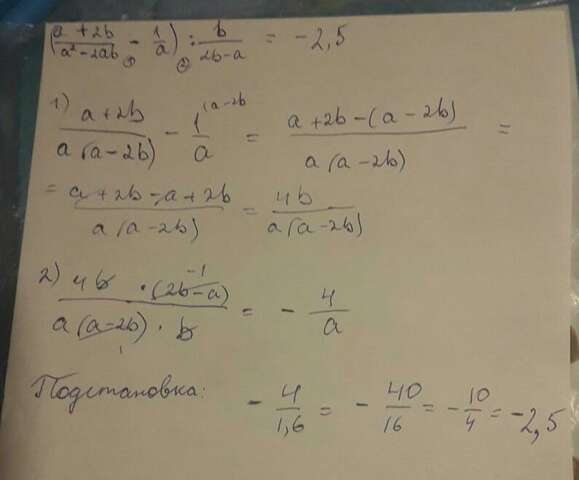 (a + 2b / a² - 2ab - 1/a) : b / 2b - a = -2,5
① ②
1) a + 2b / a(a - 2b) - 1/a (a-2b = a + 2b - (a - 2b) / a(a - 2b) =
= a + 2b - a + 2b / a(a - 2b) = 4b / a(a - 2b)
2) 4b · (2b - a) -1 / a(a - 2b) 1 · b = - 4/a
Подстановка: - 4/1,6 = - 40/16 = - 10/4 = -2,5